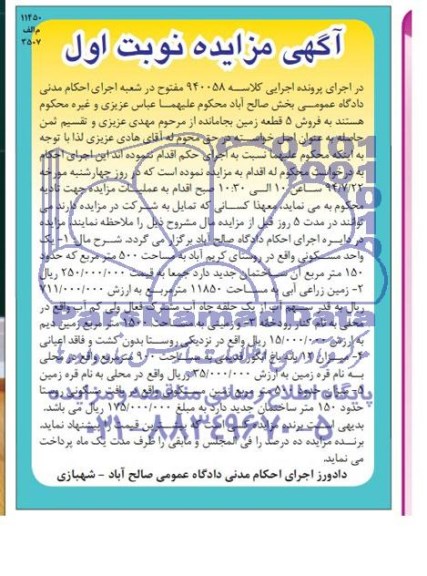 ۱۱۴۵۰
م الف
۳۵۰۷
آگهی مزایده نوبت اول
در اجرای پرونده اجرایی کلاسه ۹۴۰۰۵۸ مفتوح در شعبه اجرای احکام مدنی
دادگاه عمومی بخش صالح آباد محکوم علیهما عباس عزیزی و غیره محکوم
هستند به فروش ۵ قطعه زمین بجامانده از مرحوم مهدی عزیزی و تقسیم ثمن
حاصله به عنوان اصل خواسته در حق محکوم له آقای هادی عزیزی لذا با توجه
به اینکه محکوم علیهما نسبت به اجرای حکم اقدام ننموده اند این اجرای احکام
به درخواست محکوم له اقدام به مزایده نموده است که در روز چهارشنبه مورخه
۹۴/۷/۲۲ ساعت ۱۰ الی ۱۰:۳۰ صبح اقدام به عملیات مزایده جهت تادیه
محکوم به می نماید، معهذا کسانی که تمایل به شرکت در مزایده دارند می
توانند در مدت ۵ روز قبل از مزایده مال مشروح ذیل را ملاحظه نمایند. مزایده
در دایره اجرای احکام دادگاه صالح آباد برگزار می گردد. شرح مال: ۱- یک
واحد مسکونی واقع در روستای کریم آباد به مساحت ۵۰۰ متر مربع که حدود
۱۵۰ متر مربع آن ساختمان جدید دارد جمعا به قیمت ۲۵۰/۰۰۰/۰۰۰ ریال
۲- زمین زراعی آبی به مساحت ۱۱۸۵۰ مترمربع به ارزش ۷۱۱/۰۰۰/۰۰۰
ریال به قدر سهم از یک حلقه چاه آب مشترک فعال ولی کم آب واقع در
محلی به نام کنار رودخانه ۳- زمینی به مساحت ۱۵۰۰ متر مربع زمین دیم
به ارزش ۱۵/۰۰۰/۰۰۰ ریال واقع در نزدیکی روستا بدون کشت و فاقد اعیانی
باغ انگور قدیمی به مساحت ۹۰۰ متر مربع واقع در محلی
به نام قره زمین به ارزش ۳۵/۰۰۰/۰۰۰ ریال واقع در محلی به نام قره زمین
متر مربع زمین مسکونی واقع در بافت مسکونی روستا
حدود ۱۵۰ متر ساختمان جدید دارد به مبلغ ۱۷۵/۰۰۰/۰۰۰ ریال می باشد.
بدیهی است برنده مزایده کسی است که بالاترین قیمت را پیشنهاد نماید.
برنده مزایده ده درصد را فی المجلس و مابقی را ظرف مدت یک ماه پرداخت
می نماید.
دادورز اجرای احکام مدنی دادگاه عمومی صالح آباد - شهبازی
ParsNamadData
پایگاه اطلاع رسانی مناقصه و مزایده
۰۲۱-۸۸۳۴۹۶۷۰-۵